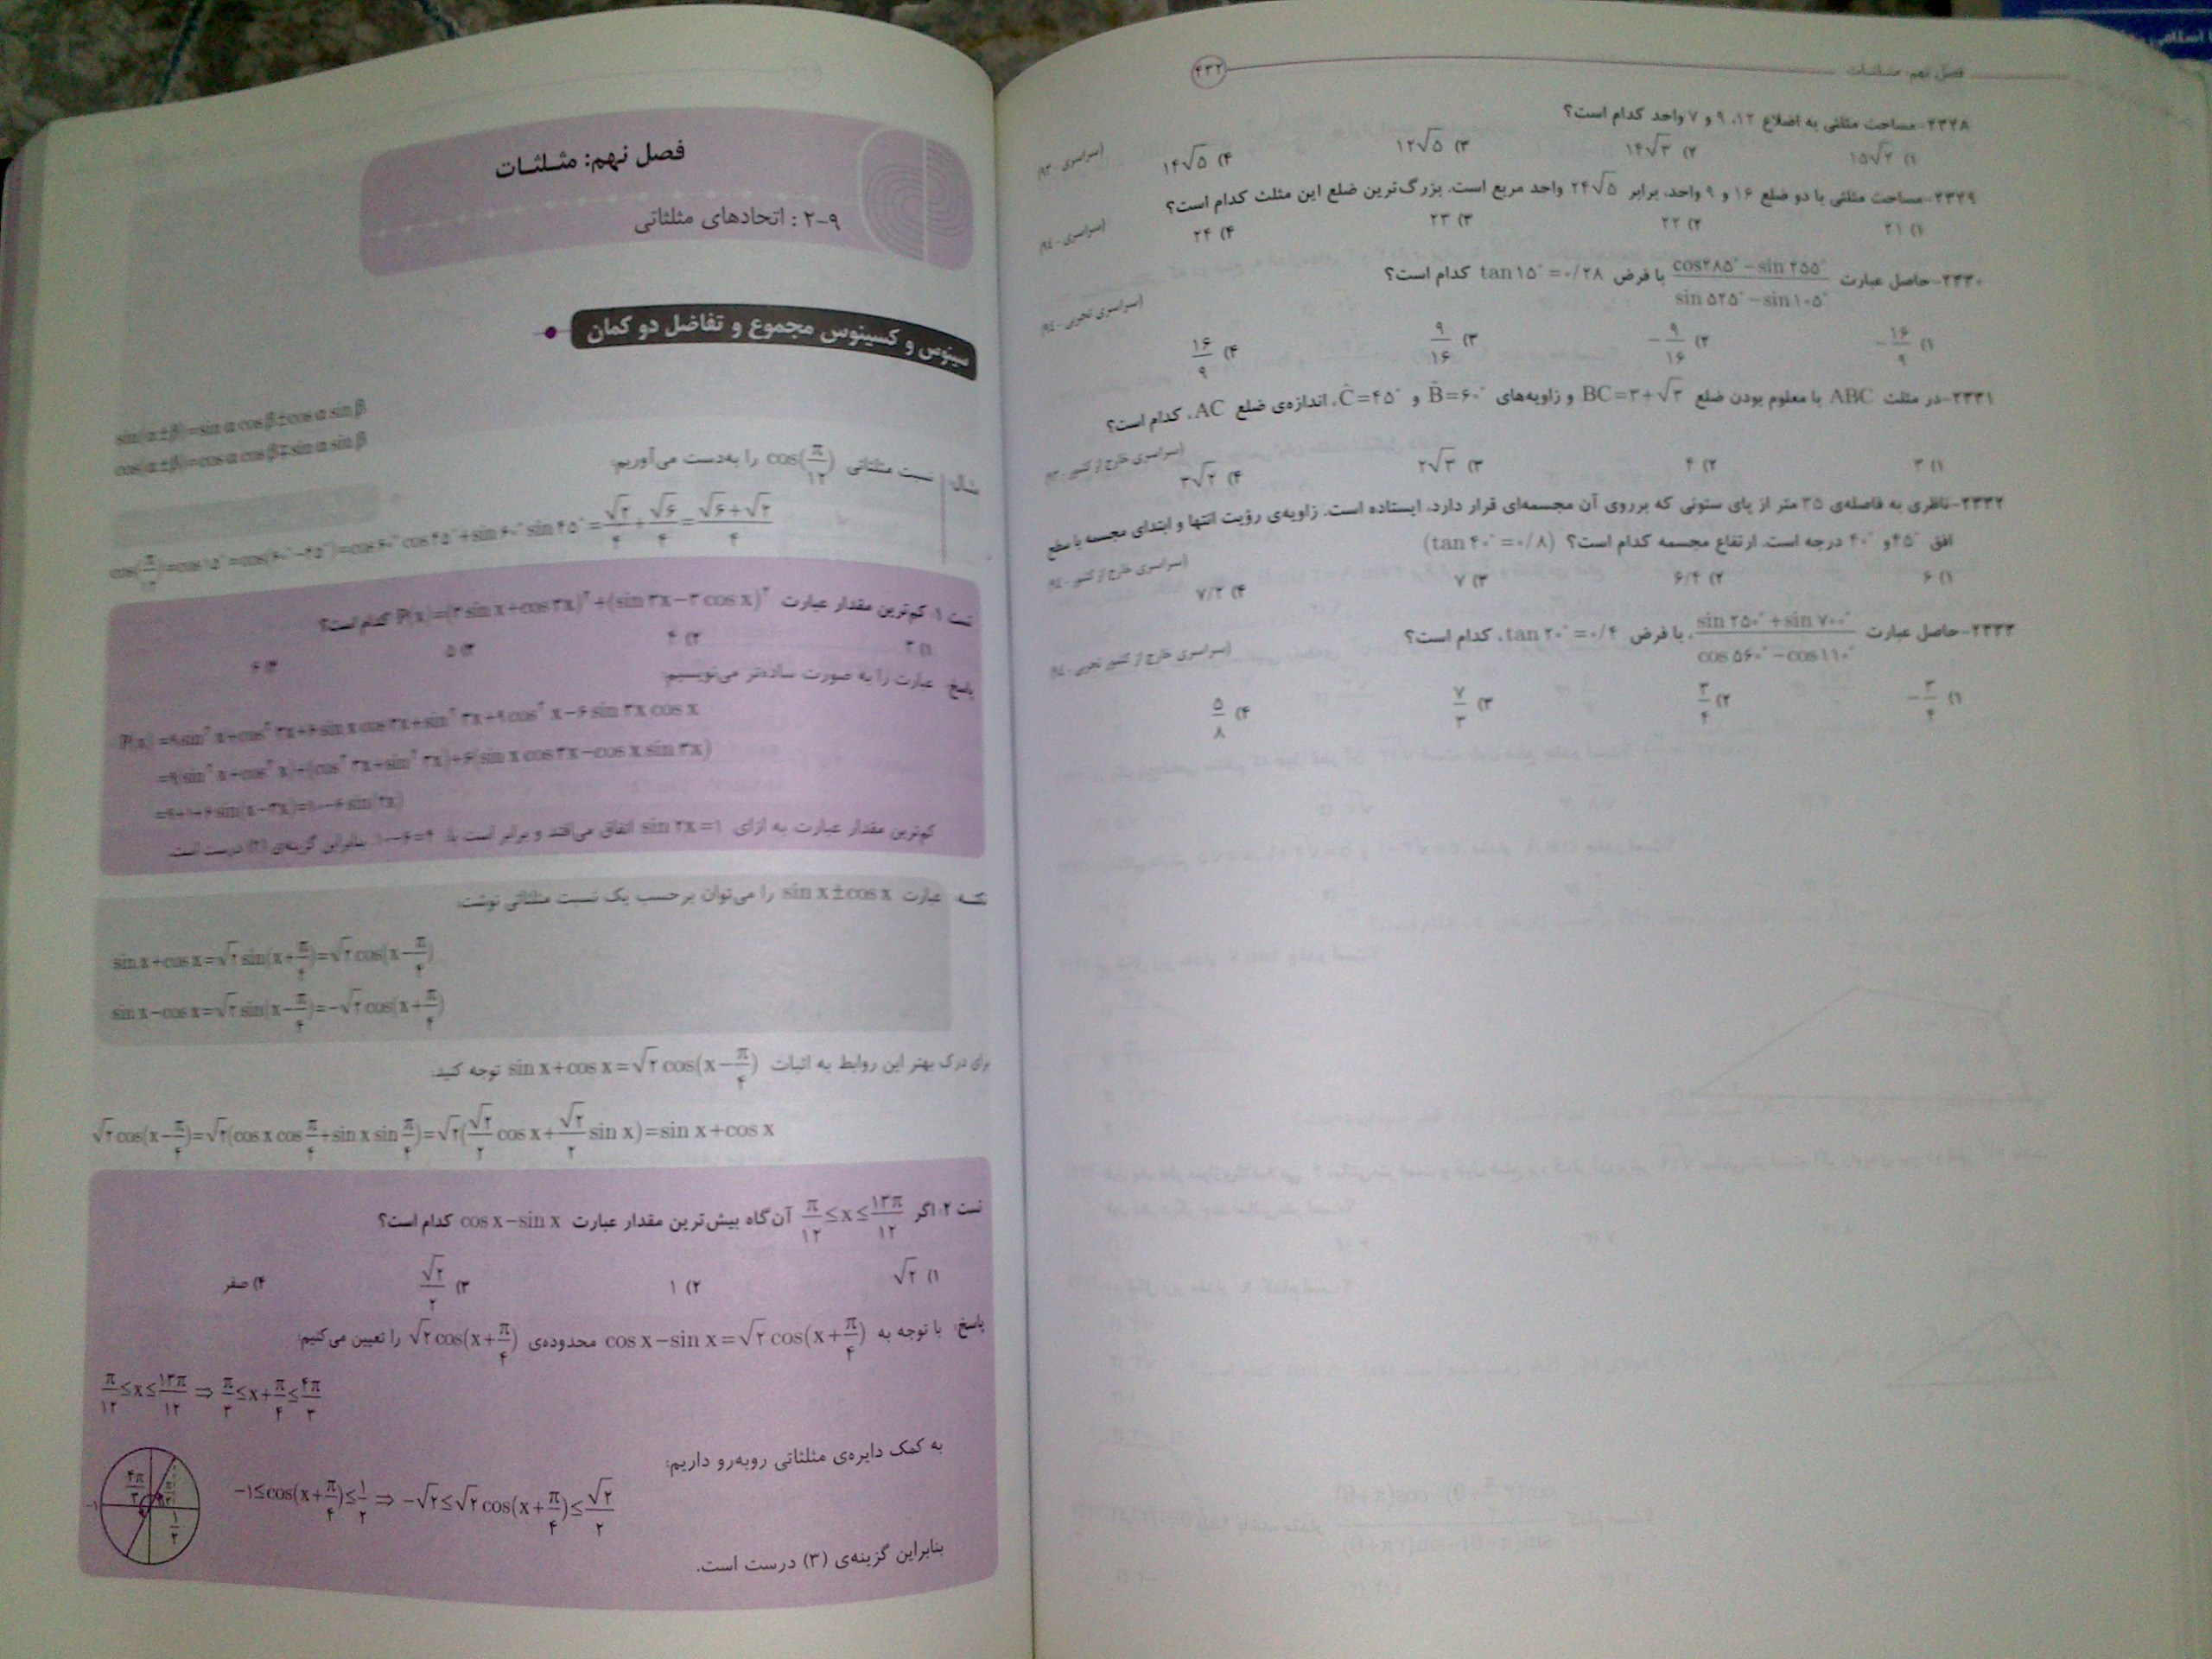 ۴۳۲
فصل نهم: مثلثات
۲۳۲۸-مساحت مثلثی به اضلاع ۱۲، ۹ و ۷ واحد کدام است؟
(سراسری - ۹۳)
۱) ۱۵√۲ ۲) ۱۴√۳ ۳) ۱۲√۵ ۴) ۱۴√۵
۲۳۲۹-مساحت مثلثی با دو ضلع ۱۶ و ۹ واحد، برابر ۲۴√۵ واحد مربع است. بزرگ‌ترین ضلع این مثلث کدام است؟
(سراسری - ۹۴)
۱) ۲۱ ۲) ۲۲ ۳) ۲۳ ۴) ۲۴
۲۳۳۰-حاصل عبارت (cos۲۸۵° − sin ۲۵۵°)/(sin ۵۲۵° − sin ۱۰۵°) با فرض tan ۱۵° = ۰/۲۸ کدام است؟
(سراسری تجربی - ۹۴)
۱) −۱۶/۹ ۲) −۹/۱۶ ۳) ۹/۱۶ ۴) ۱۶/۹
۲۳۳۱-در مثلث ABC با معلوم بودن ضلع BC=۳+√۳ و زاویه‌های B̂=۶۰° و Ĉ=۴۵°، اندازه‌ی ضلع AC، کدام است؟
(سراسری خارج از کشور - ۹۳)
۱) ۳ ۲) ۴ ۳) ۲√۳ ۴) ۳√۲
۲۳۳۲-ناظری به فاصله‌ی ۳۵ متر از پای ستونی که برروی آن مجسمه‌ای قرار دارد، ایستاده است. زاویه‌ی رؤیت انتها و ابتدای مجسمه با سطح
افق ۴۵° و ۴۰° درجه است. ارتفاع مجسمه کدام است؟ (tan ۴۰° = ۰/۸)
(سراسری خارج از کشور - ۹۴)
۱) ۶ ۲) ۶/۴ ۳) ۷ ۴) ۷/۲
۲۳۳۳-حاصل عبارت (sin ۲۵۰° + sin ۷۰۰°)/(cos ۵۶۰° − cos ۱۱۰°)، با فرض tan ۲۰° = ۰/۴، کدام است؟
(سراسری خارج از کشور تجربی - ۹۴)
۱) −۳/۴ ۲) ۳/۴ ۳) ۷/۳ ۴) ۵/۸
فصل نهم: مثـلثـات
۹-۲ : اتحادهای مثلثاتی
سینوس و کسینوس مجموع و تفاضل دو کمان
sin(α±β)=sin α cos β±cos α sin β
cos(α±β)=cos α cos β∓sin α sin β
مثال: نسبت مثلثاتی cos(π/۱۲) را به‌دست می‌آوریم:
cos(π/۱۲)=cos ۱۵°=cos(۶۰°−۴۵°)=cos ۶۰° cos ۴۵°+sin ۶۰° sin ۴۵°=√۲/۴+√۶/۴=(√۶+√۲)/۴
تست ۱: کم‌ترین مقدار عبارت P(x)=(۳ sin x+cos ۳x)²+(sin ۳x−۳ cos x)² کدام است؟
۱) ۳ ۲) ۴ ۳) ۵ ۴) ۶
پاسخ: عبارت را به صورت ساده‌تر می‌نویسیم:
P(x)=۹ sin² x+cos² ۳x+۶ sin x cos ۳x+sin² ۳x+۹ cos² x−۶ sin ۳x cos x
=۹(sin² x+cos² x)+(cos² ۳x+sin² ۳x)+۶(sin x cos ۳x−cos x sin ۳x)
=۹+۱+۶ sin(x−۳x)=۱۰−۶ sin(۲x)
کم‌ترین مقدار عبارت به ازای sin ۲x=۱ اتفاق می‌افتد و برابر است با: ۱۰−۶=۴ بنابراین گزینه‌ی (۲) درست است.
نکته: عبارت sin x±cos x را می‌توان برحسب یک نسبت مثلثاتی نوشت:
sin x+cos x=√۲ sin(x+π/۴)=√۲ cos(x−π/۴)
sin x−cos x=√۲ sin(x−π/۴)=−√۲ cos(x+π/۴)
برای درک بهتر این روابط به اثبات sin x+cos x=√۲ cos(x−π/۴) توجه کنید:
√۲ cos(x−π/۴)=√۲(cos x cos π/۴+sin x sin π/۴)=√۲(√۲/۲ cos x+√۲/۲ sin x)=sin x+cos x
تست ۲: اگر π/۱۲≤x≤۱۳π/۱۲ آن‌گاه بیش‌ترین مقدار عبارت cos x−sin x کدام است؟
۱) √۲ ۲) ۱ ۳) √۲/۲ ۴) صفر
پاسخ: با توجه به cos x−sin x=√۲ cos(x+π/۴) محدوده‌ی √۲ cos(x+π/۴) را تعیین می‌کنیم:
π/۱۲≤x≤۱۳π/۱۲ ⇒ π/۳≤x+π/۴≤۴π/۳
به کمک دایره‌ی مثلثاتی روبه‌رو داریم:
−۱≤cos(x+π/۴)≤۱/۲ ⇒ −√۲≤√۲ cos(x+π/۴)≤√۲/۲
−۱ ۴π/۳ π/۳ ۱/۲
بنابراین گزینه‌ی (۳) درست است.